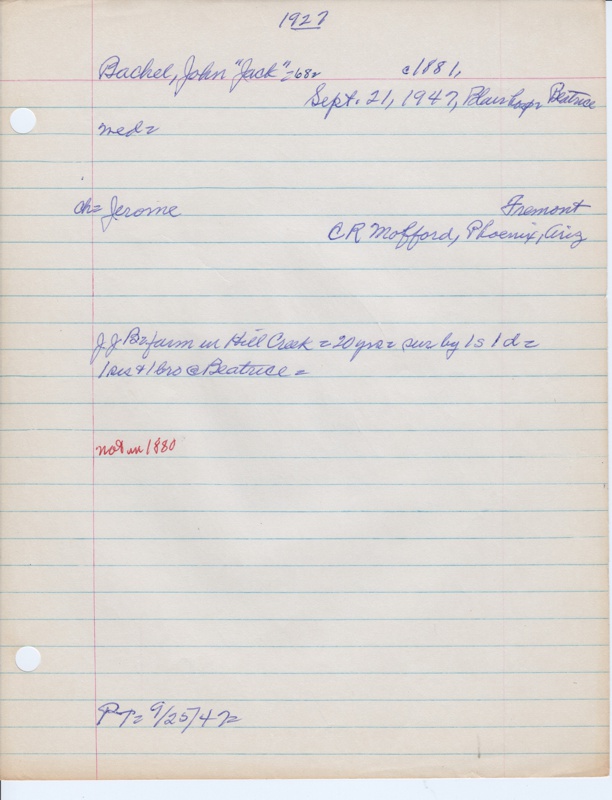 1927
Bachel, John "Jack" = 68 c1881,
Sept. 21, 1947, Blair hosp Beatrice
med=
ch= Jerome Fremont
CR Mofford, Phoenix, Ariz
JJB= farm in Hill Creek = 20 yrs = sur by 1s 1d =
1 sis + 1 bro @ Beatrice =
not in 1880
PT= 9/25/47=